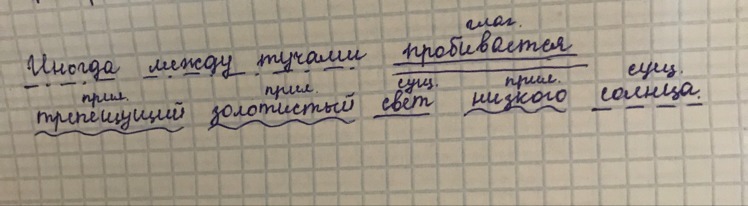 глаг.
Иногда между тучами пробивается
прил. прил. сущ. прил. сущ.
трепещущий золотистый свет низкого солнца.